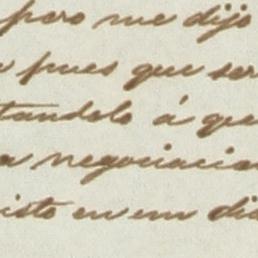 pero me dijo
pues que ser
tandolo á que
a negociacion
isto en un dia